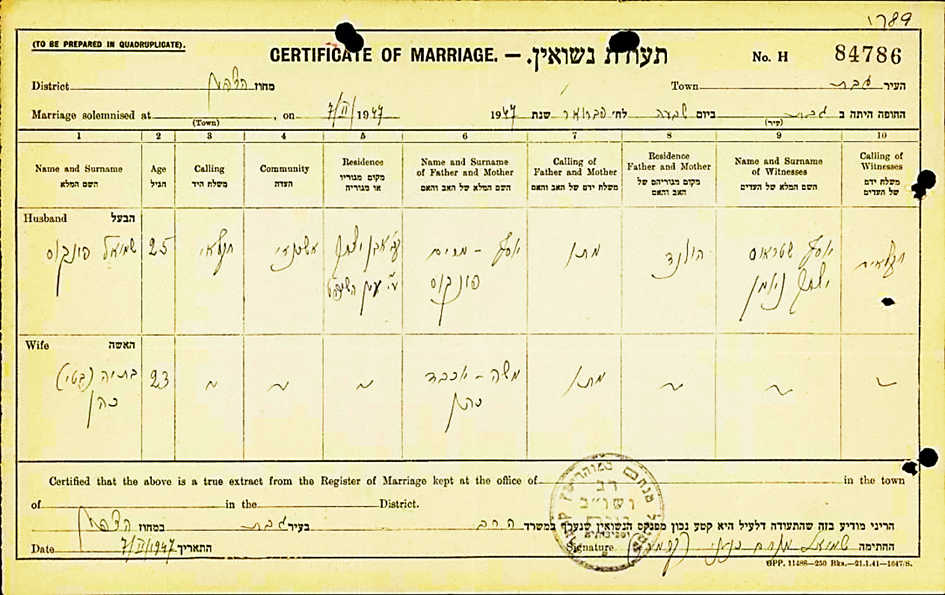 1789
(TO BE PREPARED IN QUADRUPLICATE).
CERTIFICATE OF MARRIAGE. — תעודת נשואין.
No. H 84786
District מחוז הצפון Town העיר
Marriage solemnised at , on 7/II/1947 1947 שנת פברואר לח' שבעה ביום החופה היתה ב
(Town) (עיר)
1 2 3 4 5 6 7 8 9 10
Name and Surname Age Calling Community Residence Name and Surname of Father and Mother Calling of Father and Mother Residence Father and Mother Name and Surname of Witnesses Calling of Witnesses
השם המלא הגיל משלח היד העדה מקום מגוריו או מגוריה השם המלא של האב והאם משלח ידם של האב והאם מקום מגוריהם של האב והאם השם המלא של העדים משלח ידם של העדים
Husband הבעל
שמואל פונקוס 25 חקלאי אשכנזי יוסף - מרים הולנד יוסף שטראוס חקלאים
פונקוס יצחק
Wife האשה
בתיה (בטי) 23 ~ ~ ~ משה - ~ ~ ~
כהן כהן
Certified that the above is a true extract from the Register of Marriage kept at the office of in the town
of in the District.
הריני מודיע בזה שהתעודה דלעיל היא קטע נכון מפנקס הנשואין שנערך במשרד הרב בעיר במחוז הצפון
Date 7/II/1947 התאריך Signature שמואל מנחם החתימה
GPP. 11488—250 Bks.—21.1.41—1647/S.